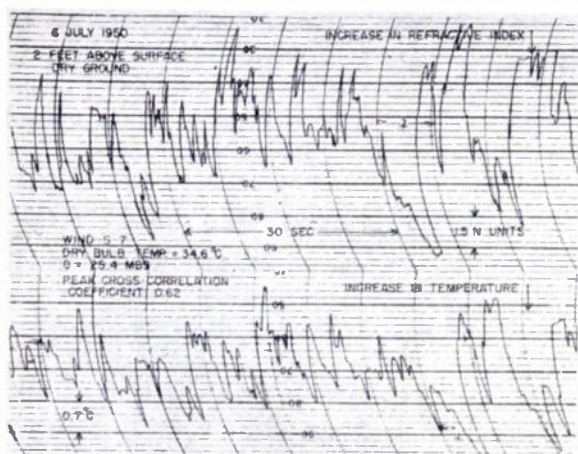 6 JULY 1950
2 FEET ABOVE SURFACE
DRY GROUND
INCREASE IN REFRACTIVE INDEX
30 SEC
1.5 N UNITS
WIND S 7
DRY BULB TEMP = 34.6°C
= 25.4 MBS
PEAK CROSS-CORRELATION
COEFFICIENT 0.62
INCREASE IN TEMPERATURE
0.7°C